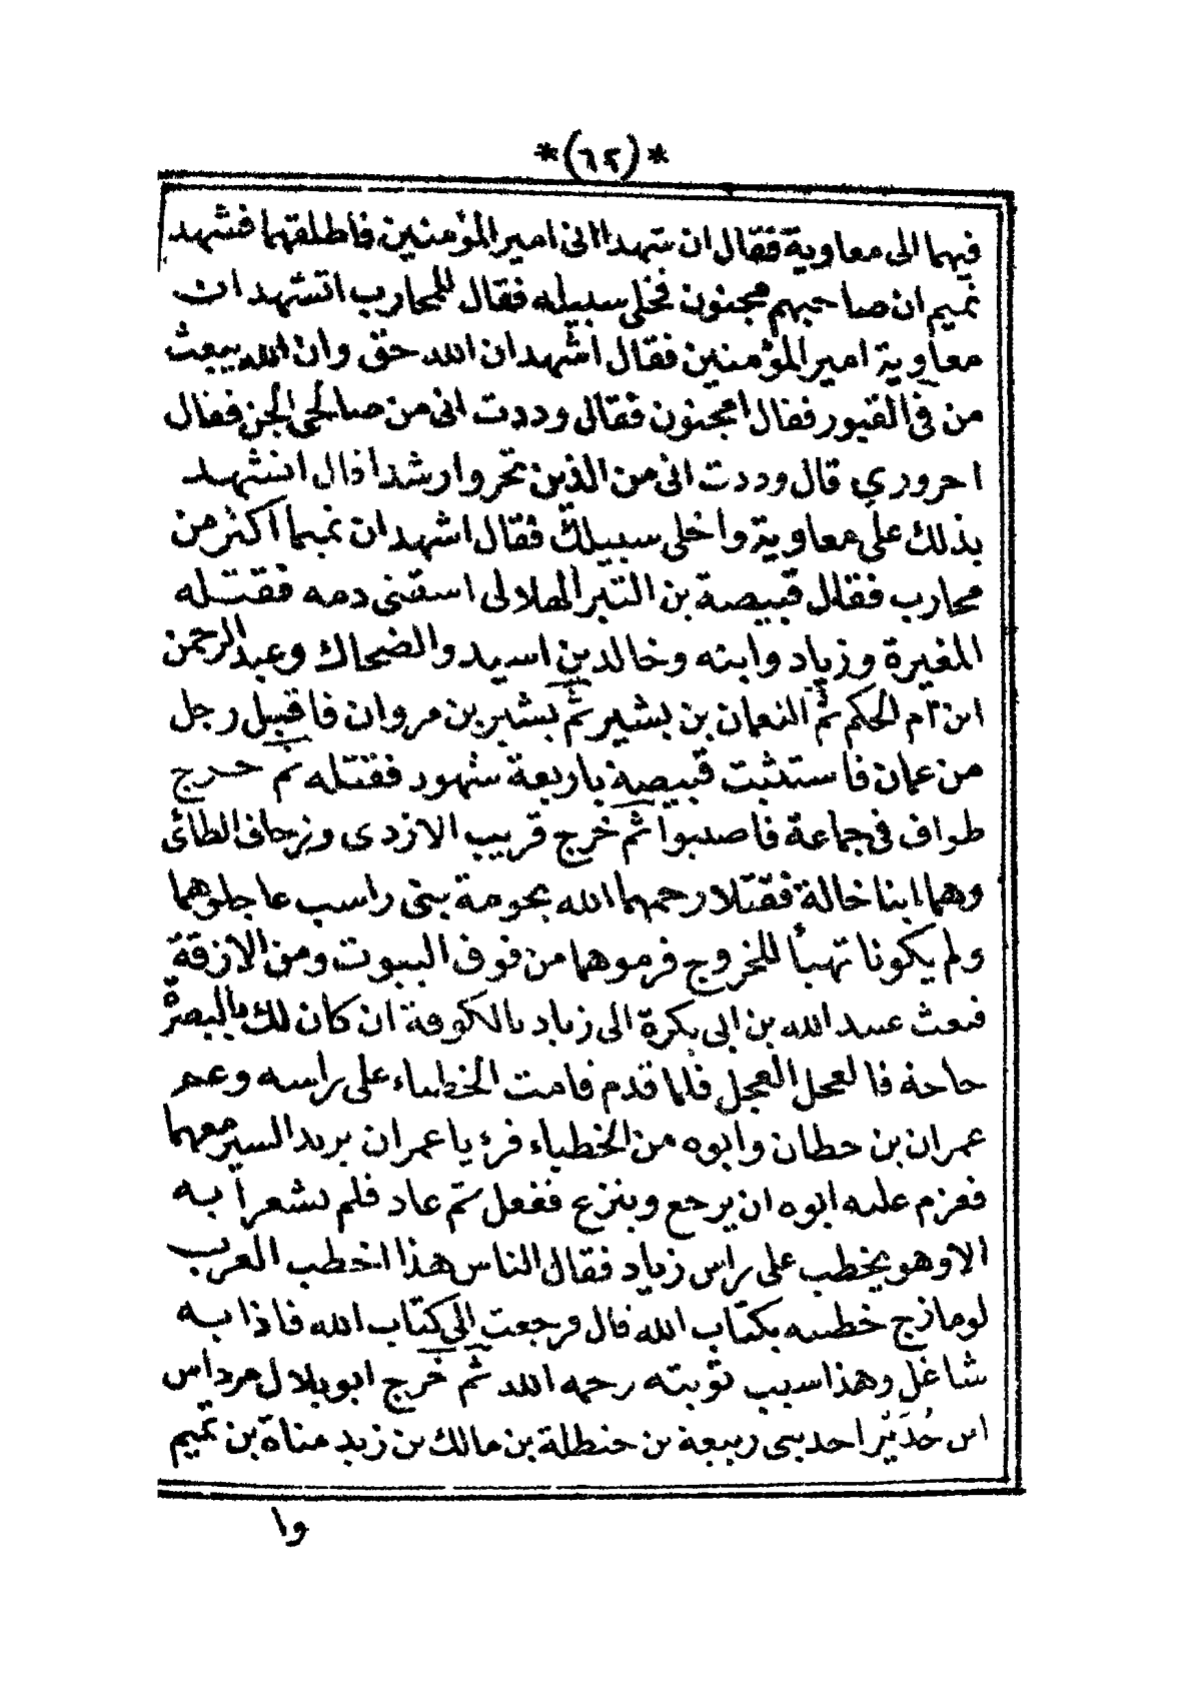 *(٦٢)*
فيهما الى معاوية فقال ان شهدا انى امير المؤمنين فاطلقهما فشهد
تميم ان صاحبهم مجنون فخلى سبيله فقال للمحارب اتشهد ان
معاوية امير المؤمنين فقال اشهد ان الله حق وان الله يبعث
من فى القبور فقال امجنون فقال وددت انى من صالحى الجن فقال
احروري قال وددت انى من الذين تحروا رشدا قال اتشهد
بذلك على معاوية واخلى سبيلك فقال اشهد ان تميما اكثر من
محارب فقال قبيصة بن الهلالى اسقنى دمه فقتله
المغيرة وزياد وابنه وخالد بن اسيد والضحاك وعبد الرحمن
ابن ام الحكم ثم النعمان بن بشير ثم بشير بن مروان فاقبل رجل
من عمان فاستثبت قبيصة باربعة شهور فقتله ثم خرج
طواف فى جماعة فاصيبوا ثم خرج قريب الازدى وزحاف الطائى
وهما ابنا خالة فقتلا رحمهما الله بحومة بنى راسب عاجلوهما
ولم يكونا تهيأ للخروج فرموهما من فوق البيوت ومن الازقة
فبعث عبيد الله بن ابى بكرة الى زياد بالكوفة ان كان لك بالبصرة
حاجة فالعجل العجل فلما قدم قامت الخطباء على راسه وعم
عمران بن حطان وابوه من الخطباء يا عمران يريد السير معهما
فعزم عليه ابوه ان يرجع وينزع ففعل ثم عاد فلم يشعرا به
الا وهو يخطب على راس زياد فقال الناس هذا اخطب العرب
لو مازج خطبته بكتاب الله قال فرجعت الى كتاب الله فاذا به
شاغل وهذا سبب توبته رحمه الله ثم خرج ابو بلال مرداس
ابن حُدَيْر احد بنى ربيعة بن حنظلة بن مالك بن زيد مناة بن تميم
وا